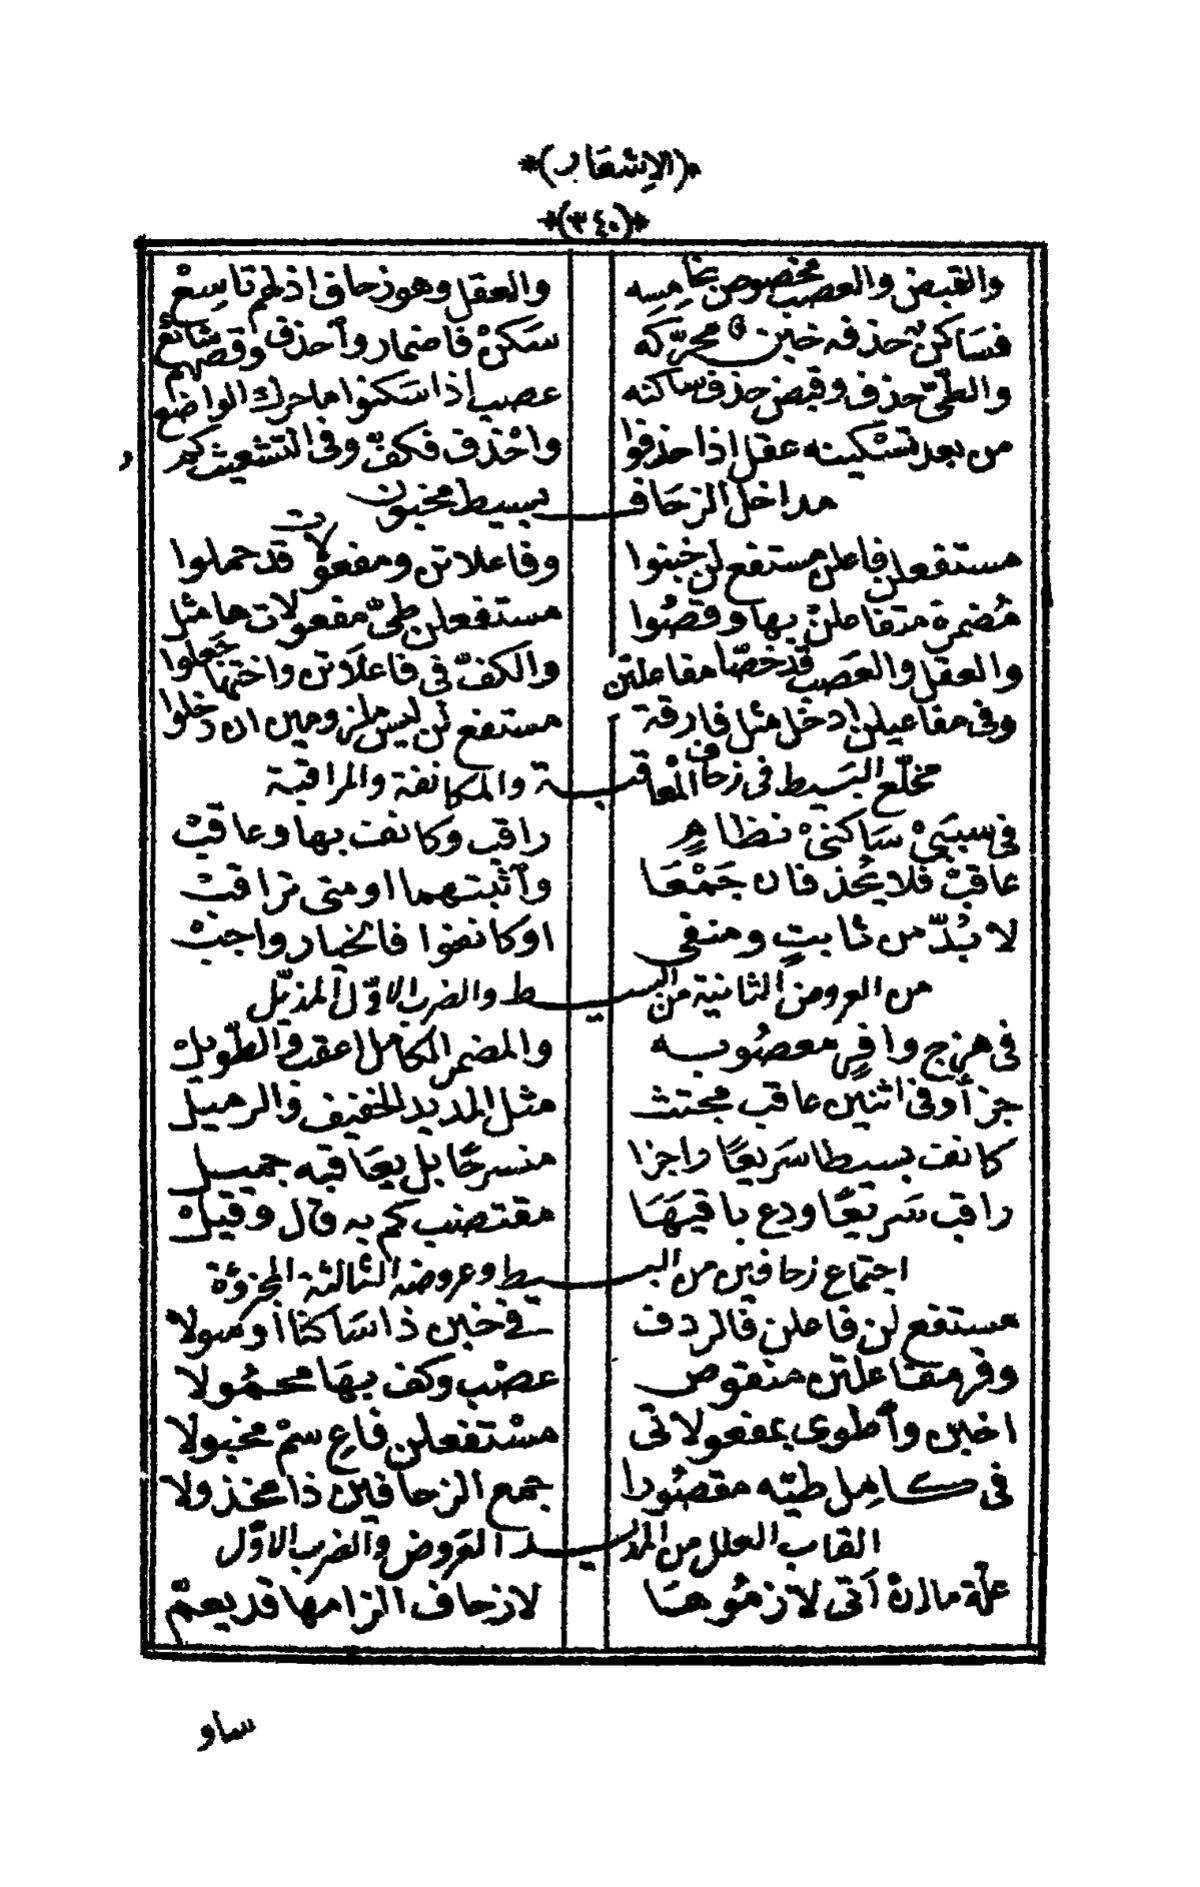 ﴿الإشعار﴾
﴿٣٤٠﴾
والقبض والعصب مخصوص بخامسه والعقل وهو زحاف اذ لهم تاسع
فساكن حذفه خبن محركه سكن فاضمار وأحذف وقصهم شائع
والطيّ حذف وقبض حذف ساكنه عصب اذا سكنوا ما حرك الواضع
من بعد تسكينه عقل اذا حذفوا واحذف فكفّ وفى التشعيث كم
مداخل الزحاف بسيط مخبون
مستفعلن فاعلن مستفع لن خبنوا وفاعلاتن ومفعولات قد حملوا
مضمرة متفاعلن بها وقصوا مستفعلن طيّ مفعولات ها مثل
والعقل والعصب قد خصّا مفاعلتن والكفّ فى فاعلاتن واختها جعلوا
وفى مفاعيلن ادخل مثل فارقة مستفع لن ليس ملز ومين ان دخلوا
مخلّع البسيط فى زحاف المعاقبة والمكانفة والمراقبة
فى سببى ساكنى نظاهر راقب وكانفت بها وعاقب
عاقب فلا يحذفان جمعا وأثبتهما او متى تراقب
لا بدّ من ثابت ومنفى او كانفوا فالخيار واجب
من العروض الثانية من البسيط والضرب الاوّل المذيّل
فى هزج وافر معصوبه والمضمر الكامل اعقب والطّويل
جزأ وفى اثنين عاقب مجتث مثل المديد الخفيف والرميل
كانفت بسيطا سريعًا واجزا منسرحًا بل يعاقبه جميل
راقب سريعًا ودع باقيها مقتضب كم به قال وقيل
اجتماع زحافين من البسيط وعروضه الثالثة المجزؤة
مستفع لن فاعلن فالردف فى خبن ذا ساكنا أو سولا
وفر مفاعلتن منقوص عصب وكف بها محمولا
اخبن وأطوى بمفعولاتى مستفعلن فاع سم مخبولا
فى كامل طيّه مقصورا جمع الزحافين ذا مخذولا
القاب العلل من المديد العروض والضرب الاوّل
علّة ما ان أتى لازموها لا زحاف الزامها قد يعمّ
ساو